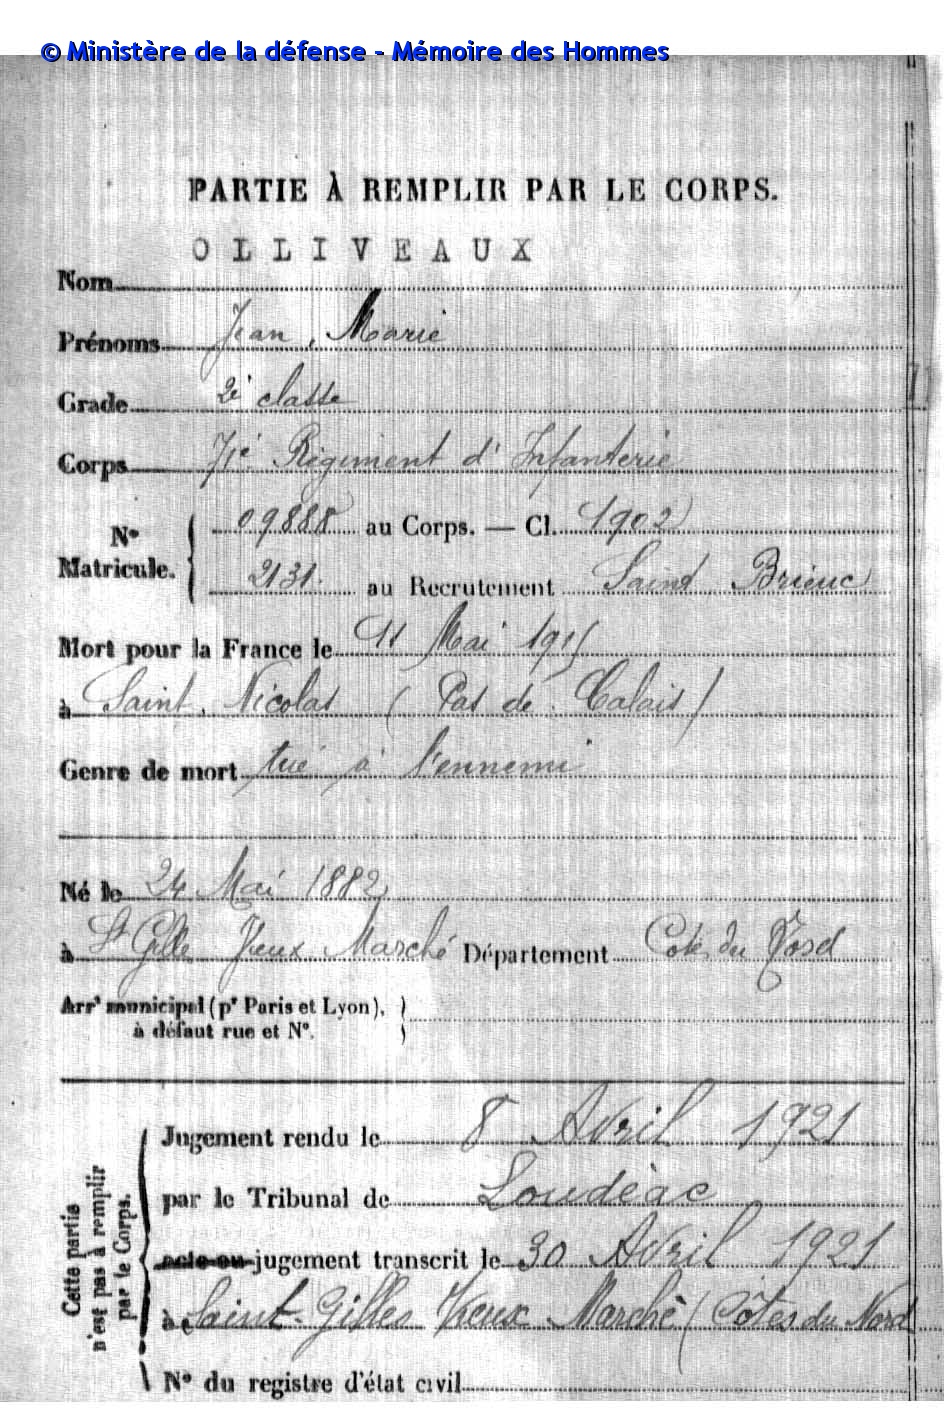 © Ministère de la défense - Mémoire des Hommes
PARTIE À REMPLIR PAR LE CORPS.
OLLIVEAUX
Nom
Prénoms Jean, Marie
Grade 2e classe
Corps 71e Régiment d'Infanterie
No Matricule. 09888 au Corps. — Cl. 1902
2131 au Recrutement Saint Brieuc
Mort pour la France le 11 Mai 1915
à Saint. Nicolas (Pas de Calais)
Genre de mort tué à l'ennemi
Né le 24 Mai 1882
à St Gille Vieux Marché Département Côtes du Nord
Arrt municipal (pr Paris et Lyon),
à défaut rue et No.
Cette partie n'est pas à remplir par le Corps.
Jugement rendu le 8 Avril 1921
par le Tribunal de Loudéac
acte ou jugement transcrit le 30 Avril 1921
à Saint-Gilles Vieux Marché (Côtes du Nord
No du registre d'état civil